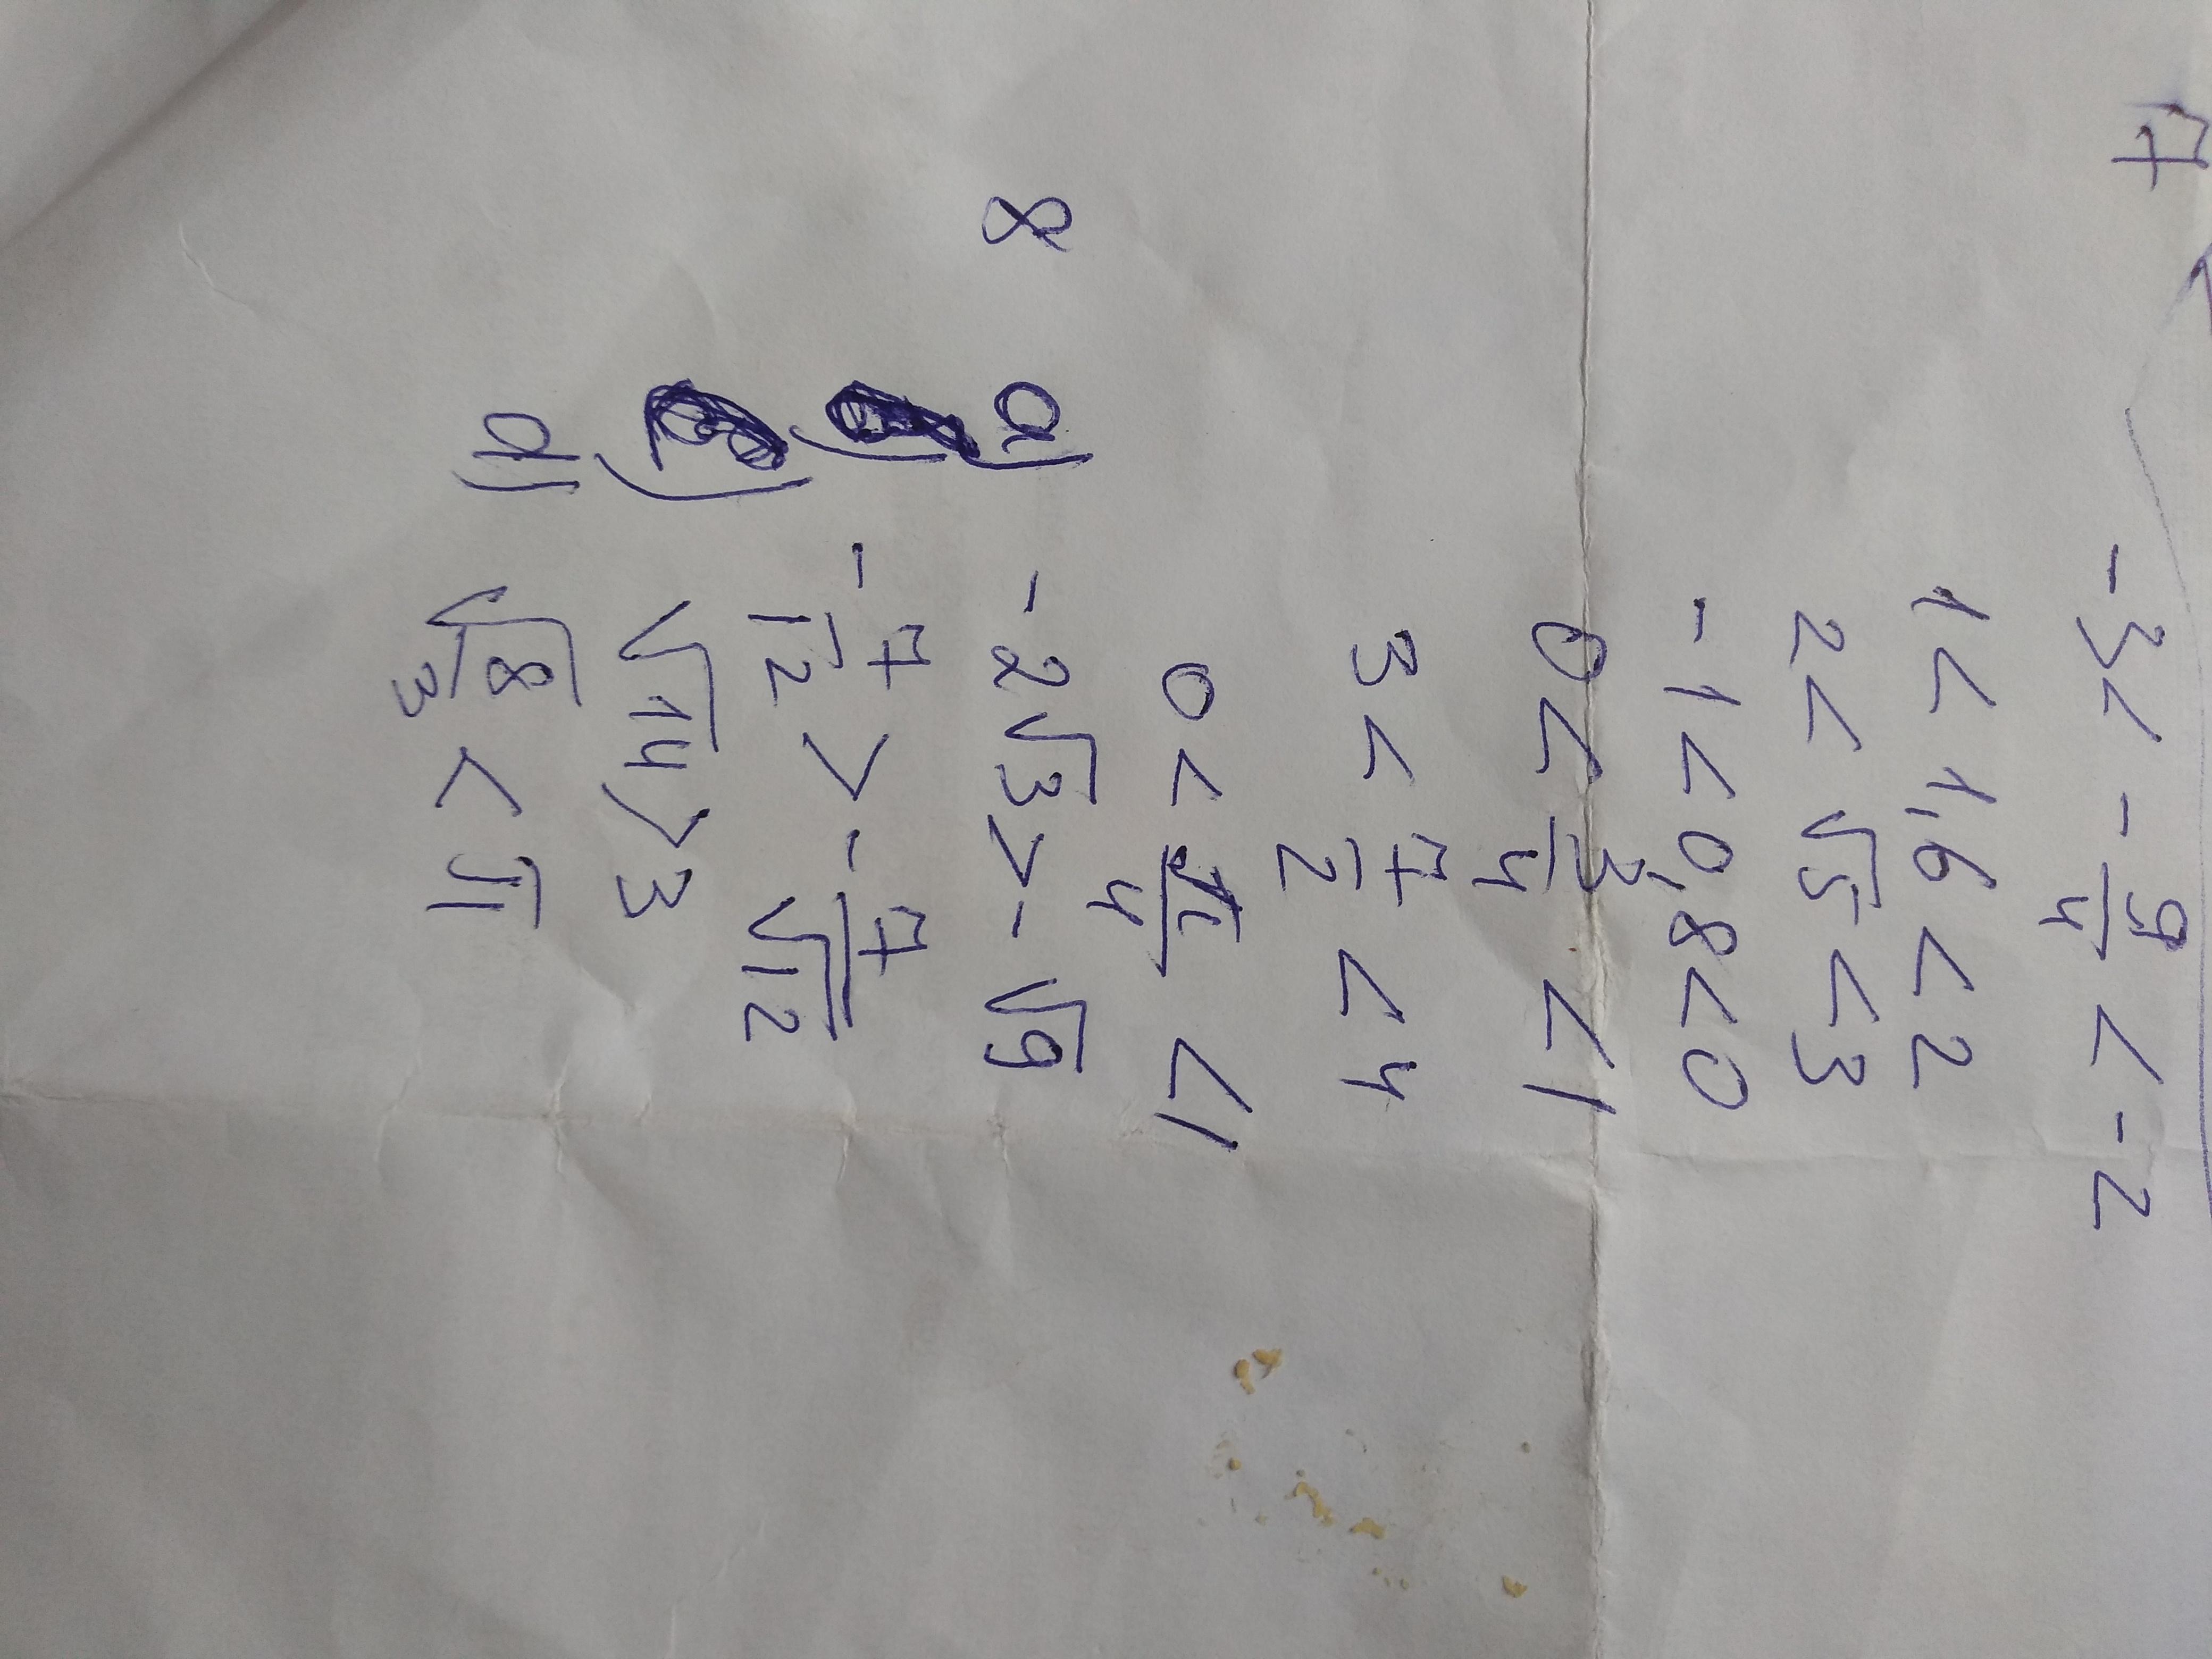 7 -3 < -9/4 < -2
1 < 1,6 < 2
2 < √5 < 3
-1 < 0,8 < 0
0 < 3/4 < 1
3 < 7/2 < 4
0 < π/4 < 1
8 a) -2√3 > -√9
-7/12 > -7/√12
√14 > 3
d) √8/3 < √11